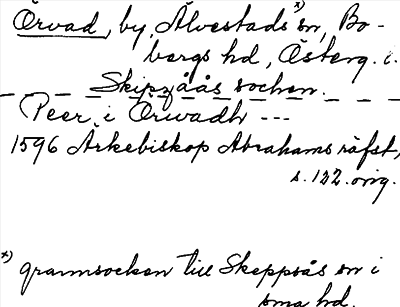 Örvad, by, Älvestads *) sn, Bo-
bergs hd, Österg. i.
Skeppsås socken.
Peer i Örwadh ---
1596 Ärkebiskop Abrahams räfst,
s. 122. orig.
*) grannsocken till Skeppsås sn i
sma hd.